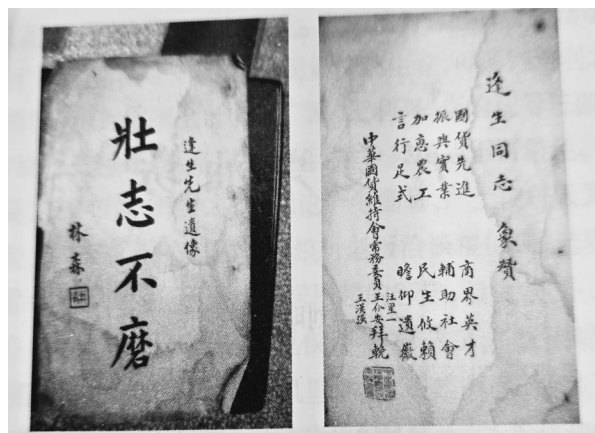 逢生先生遺像
壯志不磨
林森
逢生同志 象贊
國貨先進 商界英才
振興實業 輔助社會
加惠農工 民生攸賴
言行足式 瞻仰遺徽
中華國貨維持會常務委員
汪星一
王介安
王漢強
拜輓